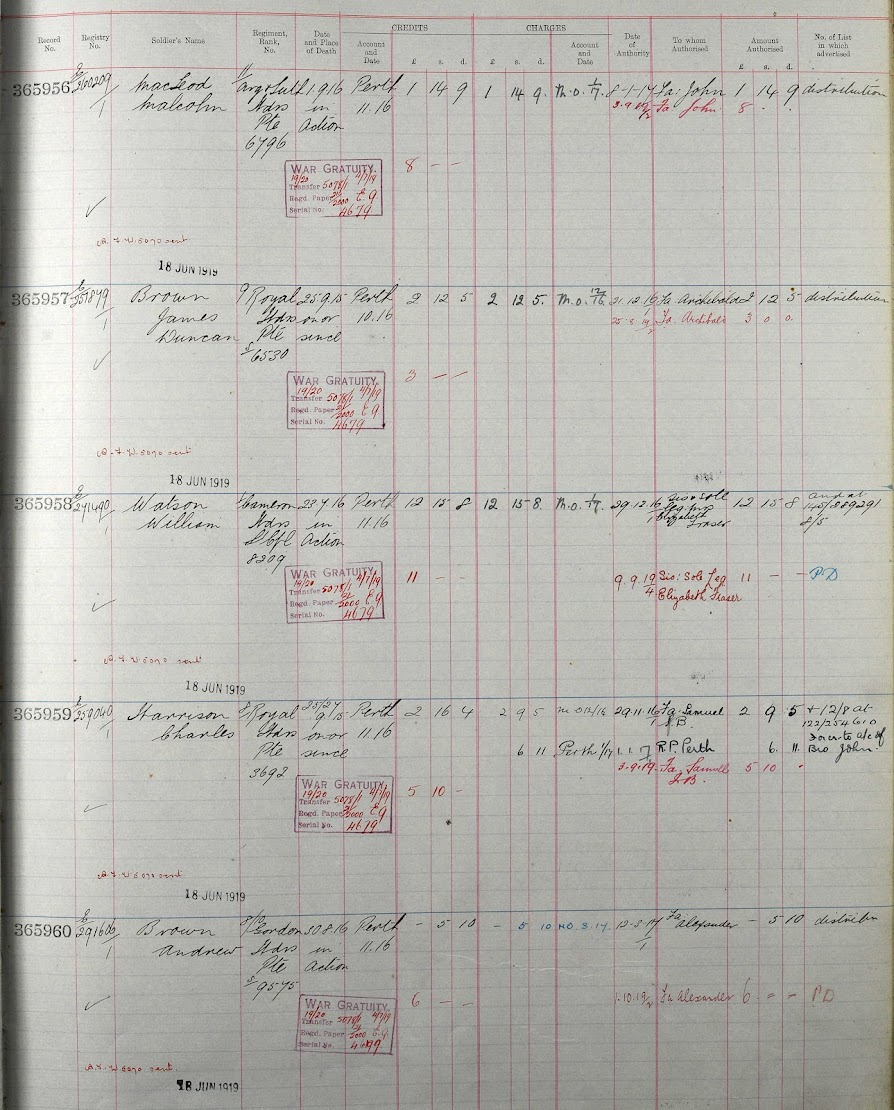 CREDITS CHARGES
Record No. Registry No. Soldier's Name Regiment, Rank, No. Date and Place of Death Account and Date £ s. d. £ s. d. Account and Date Date of Authority To whom Authorised Amount Authorised £ s. d. No. of List in which advertised
365956 E/260209/1 MacLeod 11/Arg & Suth 1.9.16 Perth 1 14 9 1 14 9. M.O. 1/17. 8-1-17 Fa: John 1 14 9 distribution
Malcolm Hdrs in 11.16 3.9.19/2 Fa John 8
Pte Action
6796
WAR GRATUITY. 8 - -
19/20
Transfer 5078/1 4/7/19
Regd. Paper 21/2000 E9
Serial No. 4679
A.F.W. 5070 sent
18 JUN 1919
365957 E/257879/1 Brown 9/Royal 25.9.15 Perth 2 12 5 2 12 5. M.O. 12/16. 21.12.16 Fa. Archibald 2 12 5 distribution
James Hdrs on or 10.16 25.8.19/2 Fa. Archibald 3 0 0.
Duncan Pte since
S/6530
WAR GRATUITY. 3 - -
19/20
Transfer 5078/1 4/7/19
Regd. Paper 21/2000 E9
Serial No. 4679
A.F.W. 5070 sent
18 JUN 1919
365958 E/271490/1 Watson Cameron 23 7 16 Perth 12 15 8 12 15 8. M.O. 1/17. 29.12.16/1 Sis & Sole Leg Mrs 12 15 8 and at
William Hdrs in 11.16 Elizabeth Fraser 145/889291
L/Cpl Action 8/5
8209
WAR GRATUITY. 11 - - 9.9.19/4 Sis: Sole Leg 11 - - P.D
19/20 Elizabeth Fraser
Transfer 5078/1 4/7/19
Regd. Paper 21/2000 E9
Serial No. 4679
A.F.W 5070 sent
18 JUN 1919
365959 E/259040/1 Harrison 8/Royal 25/27 9/15 Perth 2 16 4 2 9 5 M.O 12/16 29.11.16/1 Fa. Samuel J.B 2 9 5 + 12/8 at
Charles Hdrs on or 11.16 122/254610
Pte since 6 11 Perth 1/17 1.1.17 R.P. Perth 6. 11. Bro John.
3692 3.9.19 Fa. Samuel 5 10
J.B.
WAR GRATUITY. 5 10 -
19/20
Transfer 5078/1 4/7/19
Regd. Paper 21/2000 E9
Serial No. 4679
A.F.W 5070 sent
18 JUN 1919
365960 E/291606/1 Brown 8/10 Gordon 30.8.16 Perth - 5 10 - 5 10 M.O. 3.17. 12-3-17/1 Fa Alexander - 5 10 distribtn
Andrew Hdrs in 11.16
Pte Action
S/9575
WAR GRATUITY. 6 - - 1.10.19/2 Fa Alexander 6 - - PD
19/20
Transfer 5078/1 4/7/19
Regd. Paper 21/2000 E9
Serial No. 4699
A.F.W 5070 sent
18 JUN 1919